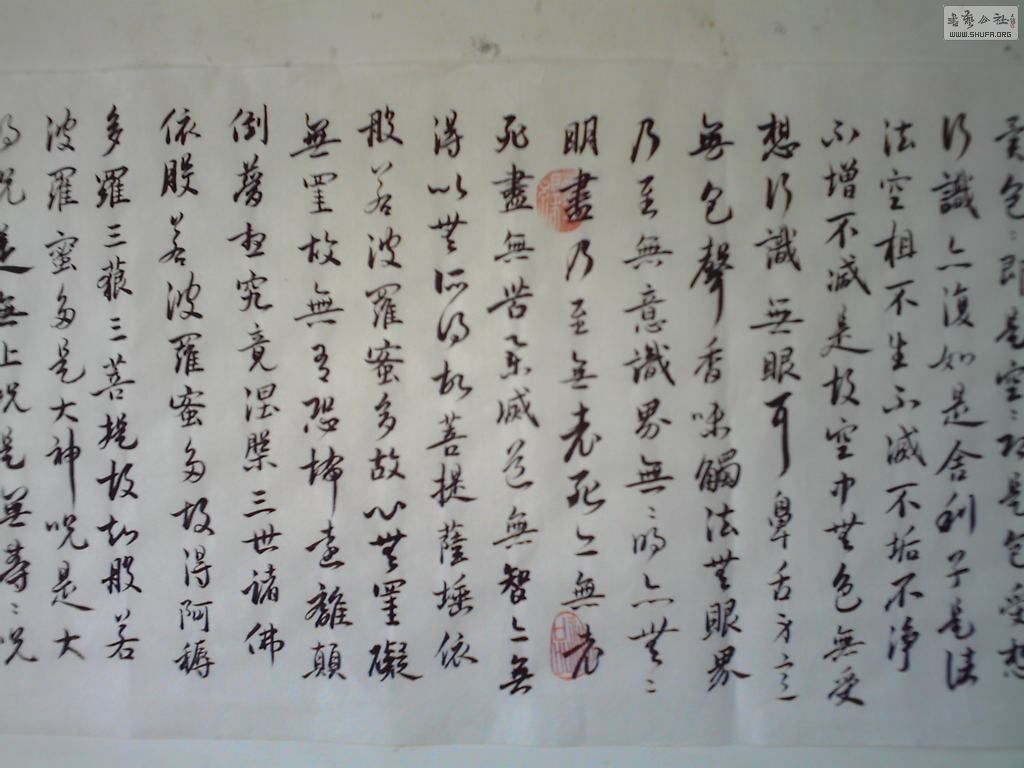 異色〻即是空〻即是色受想
行識亦復如是舍利子是诸
法空相不生不減不垢不净
不增不减是故空中無色無受
想行識無眼耳鼻舌身意
無色聲香味觸法無眼界
乃至無意識界無〻明亦無〻
明盡乃至無老死亦無老
死盡無苦集滅道無智亦無
得以無所得故菩提薩埵依
般若波羅蜜多故心無罣礙
無罣故無有恐怖遠離顛
倒夢想究竟涅槃三世諸佛
依般若波羅蜜多故得阿耨
多羅三藐三菩提故知般若
波羅蜜多是大神咒是大
明咒是無上咒是無等〻咒
書藝公社
WWW.SHUFA.ORG